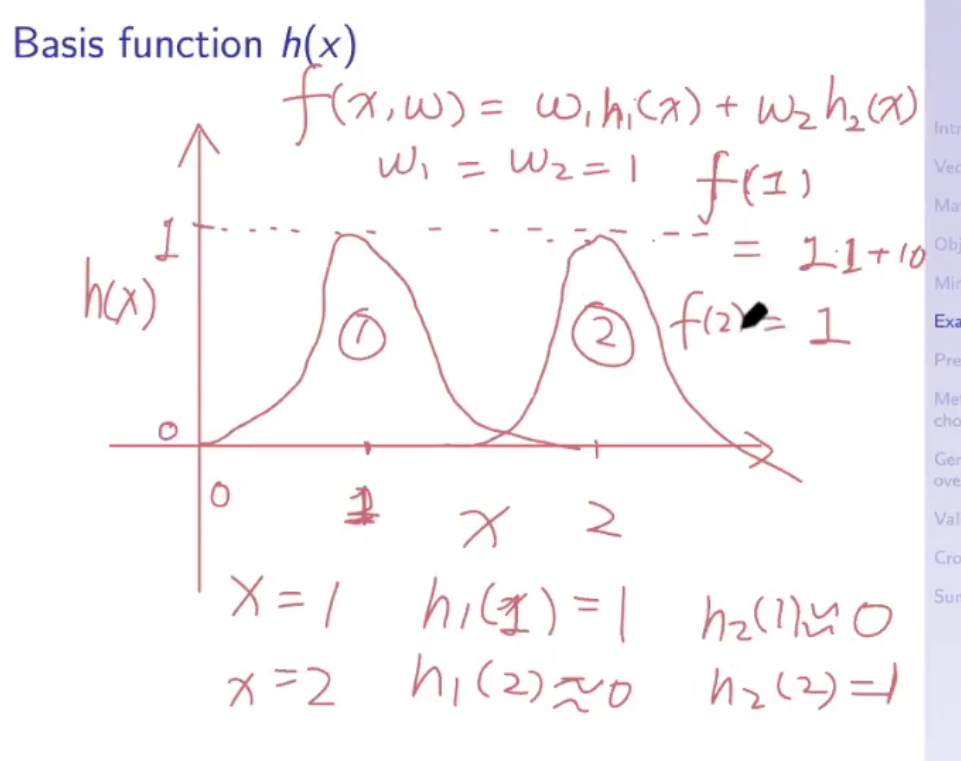 Basis function h(x)
f(x,w) = w₁h₁(x) + w₂h₂(x)
w₁ = w₂ = 1
f(1)
= 1·1+10
1
h(x)
①
②
f(2) = 1
0
0
1
x
2
x=1 h₁(1)=1 h₂(1)≈0
x=2 h₁(2)≈0 h₂(2)=1
Intr
Vec
Ma
Obj
Min
Exa
Pre
Met
cho
Gen
ove
Val
Cro
Sum